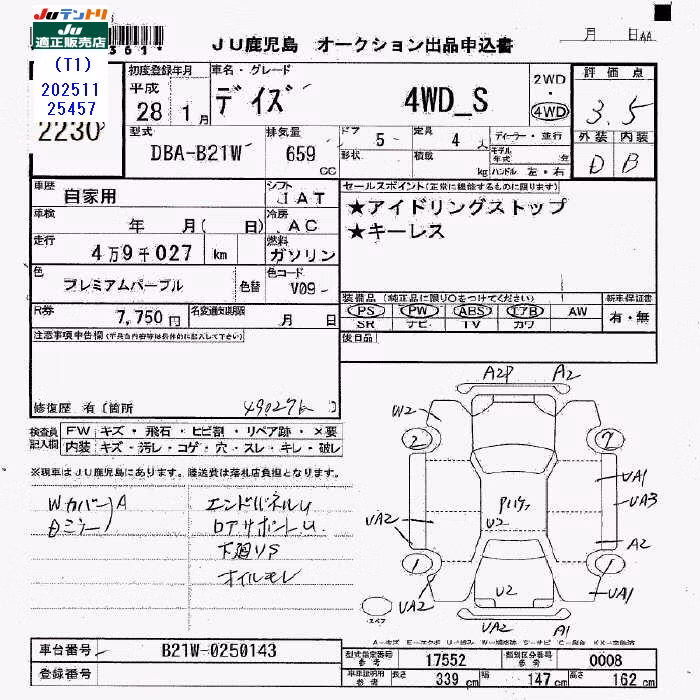 Juテントリ
Ju
適正販売店
(T1)
202511
25457
2230
JU鹿児島 オークション出品申込書
月 日AA
初度登録年月
平成
28 1月
車名・グレード
デイズ 4WD_S
2WD
・
4WD
評価点
3.5
外装 内装
D B
型式
DBA-B21W
排気量
659 cc
ドア 5
形状
定員 4 人
積載 kg
ディーラー・並行
モデル年式 年
ハンドル 左・右
車歴 自家用
シフト IAT
車検 年 月( 日)
冷房 AC
走行 4万9千027 km
燃料 ガソリン
色 プレミアムパープル 色替
色コード V09-
R券 7,750円
名変通知期限 月 日
セールスポイント(正常に機能するものに限ります)
★アイドリングストップ
★キーレス
装備品(純正品に限り○をつけてください)
新車保証書
PS PW ABS エアB AW
SR ナビ TV カワ
有・無
後日品
注意事項申告欄(不具合内容等は具体的に記入して下さい)
修復歴 有 箇所
49027k
検査員記入欄
FW キズ・飛石・ヒビ割・リペア跡・×要
内装 キズ・汚レ・コゲ・穴・スレ・キレ・破レ
※現車はJU鹿児島にあります。陸送費は落札店負担となります。
Wカバー A
Dミラー
エンドパネルU
ロアサポートU
下廻りS
オイルモレ
A2P A2
W2
2 2
UA1
UA3
UA2
U2
A2
1 1
UA2 UA1
U2
UA2 A1
スペア
車台番号 B21W-0250143
登録番号
型式指定番号 参考 17552
類別区分番号 参考 0008
車両証明用 参考
長さ 339 cm 幅 147 cm 高さ 162 cm